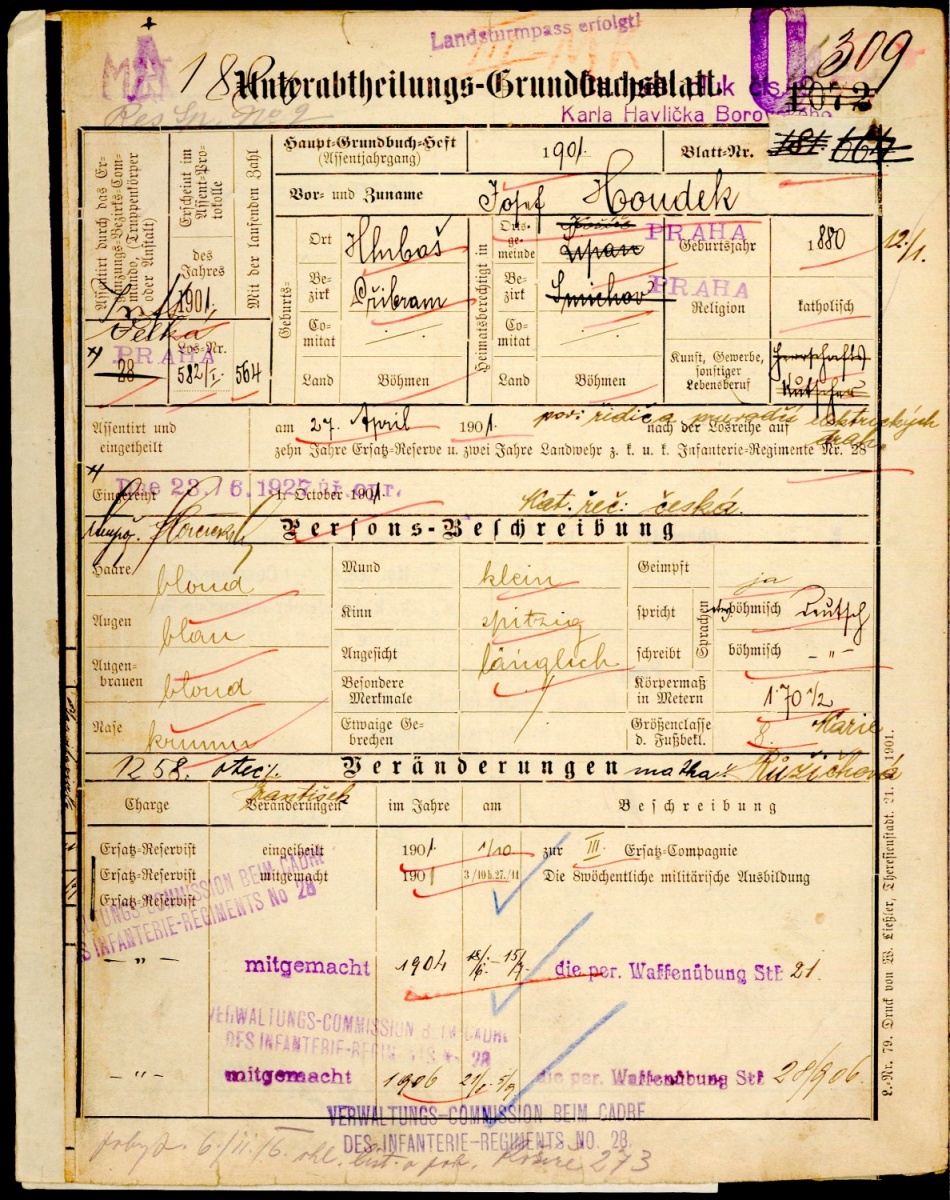 Landsturmpass erfolgt!
309
Unterabtheilungs-Grundbuchsblatt.
1072
Karla Havlíčka Borovského
Assentirt durch das Ergänzungs-Bezirks-Commando, (Truppenkörper oder Anstalt)
Erscheint im Assent-Protokolle
des Jahres
1901
Mit der laufenden Zahl
Los-Nr.
28
582/I.
564
PRAHA
Haupt-Grundbuch-Heft
(Assentjahrgang)
1901.
Blatt-Nr.
181 664
Vor- und Zuname
Josef Houdek
Geburts-
Ort
Hluboš
Bezirk
Přibram
Comitat
Land
Böhmen
Heimatsberechtigt in
Ortsgemeinde
PRAHA
Bezirk
Smichov
PRAHA
Comitat
Land
Böhmen
Geburtsjahr
1880
12/1.
Religion
katholisch
Kunst, Gewerbe, sonstiger Lebensberuf
Herrschafts
Kutscher
pov: řidič elektrických drah
Assentirt und eingetheilt
am 27. April 1901. nach der Losreihe auf
zehn Jahre Ersatz-Reserve u. zwei Jahre Landwehr z. k. u. k. Infanterie-Regimente Nr. 28
Eingereiht
1. October 1901.
Dne 23./6. 1927
Mat. řeč: česká.
Persons-Beschreibung
Haare
blond
Augen
blau
Augenbrauen
blond
Nase
krumm
Mund
klein
Kinn
spitzig
Angesicht
länglich
Besondere Merkmale
Etwaige Gebrechen
Geimpft
ja
Sprachen
spricht
böhmisch deutsch
schreibt
böhmisch - „ -
Körpermaß in Metern
1·70 1/2
Größenclasse d. Fußbekl.
8.
1258. otec:
František
Veränderungen
matka: Marie Růžičková
Charge
Veränderungen
im Jahre
am
Beschreibung
Ersatz-Reservist
eingetheilt
1901.
1/10
zur III. Ersatz-Compagnie
Ersatz-Reservist
mitgemacht
1901
3/10 b. 27./11
Die 8wöchentliche militärische Ausbildung
Ersatz-Reservist
VERWALTUNGS-COMMISSION BEIM CADRE
DES INFANTERIE-REGIMENTS No 28
- „ -
mitgemacht
1904
die per. Waffenübung StR 21.
VERWALTUNGS-COMMISSION BEIM CADRE
DES INFANTERIE-REGIMENTS No 28
- „ -
mitgemacht
1906
die per. Waffenübung StR 28/906.
VERWALTUNGS-COMMISSION BEIM CADRE
DES INFANTERIE-REGIMENTS NO. 28.
273
L.-Nr. 79. Druck von W. Ließler, Theresienstadt. 21. 1901.